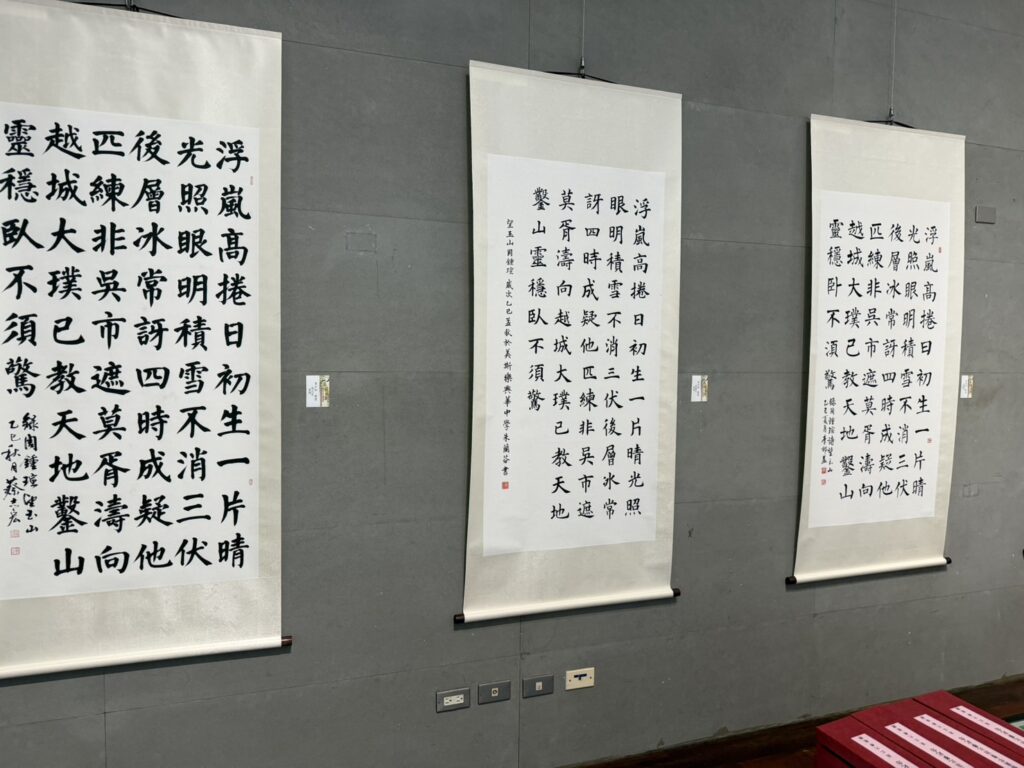 浮嵐髙捲日初生一片晴
光照眼明積雪不消三伏
後層冰常訝四時成疑他
匹練非吳市遮莫胥濤向
越城大璞已教天地鑿山
靈穩臥不須驚
錄周鍾瑄望玉山
乙巳秋月蔡宏
浮嵐高捲日初生一片晴光照
眼明積雪不消三伏後層冰常
訝四時成疑他匹練非吳市遮
莫胥濤向越城大璞已教天地
鑿山靈穩臥不須驚
望玉山周鍾瑄 歲次乙巳孟秋於美斯樂興華中學朱蘭芬書
浮嵐高捲日初生一片晴
光照眼明積雪不消三伏
後層冰常訝四時成疑他
匹練非吳市遮莫胥濤向
越城大璞已教天地鑿山
靈穩卧不須驚
錄周鍾瑄詩望玉山
乙巳